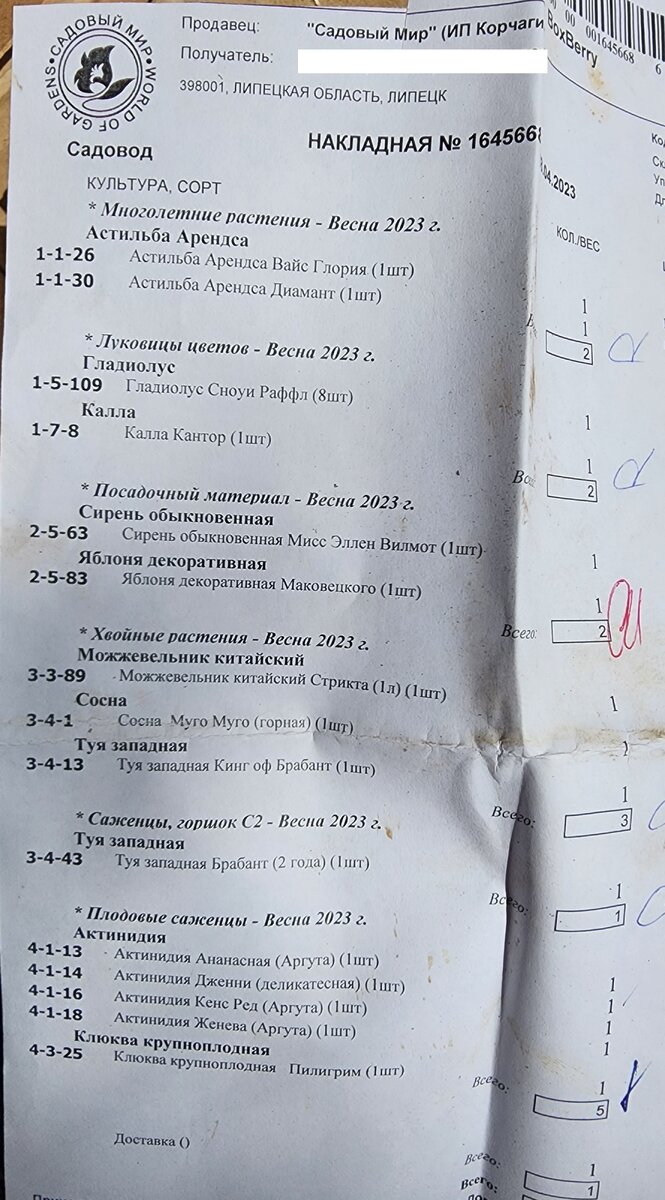 САДОВЫЙ МИР • WORLD OF GARDENS •
Продавец: "Садовый Мир" (ИП Корчаги
BoxBerry
00 00 001645668 6
Получатель:
398001, ЛИПЕЦКАЯ ОБЛАСТЬ, ЛИПЕЦК
НАКЛАДНАЯ № 1645668
.04.2023
Садовод
КУЛЬТУРА, СОРТ
КОЛ./ВЕС
* Многолетние растения - Весна 2023 г.
Астильба Арендса
1-1-26 Астильба Арендса Вайс Глория (1шт) 1
1-1-30 Астильба Арендса Диамант (1шт) 1
2
* Луковицы цветов - Весна 2023 г.
Гладиолус
1-5-109 Гладиолус Сноуи Раффл (8шт) 1
Калла
1-7-8 Калла Кантор (1шт) 1
2
* Посадочный материал - Весна 2023 г.
Сирень обыкновенная
2-5-63 Сирень обыкновенная Мисс Эллен Вилмот (1шт) 1
Яблоня декоративная
2-5-83 Яблоня декоративная Маковецкого (1шт) 1
Всего: 2
* Хвойные растения - Весна 2023 г.
Можжевельник китайский
3-3-89 Можжевельник китайский Стрикта (1л) (1шт) 1
Сосна
3-4-1 Сосна Муго Муго (горная) (1шт) 1
Туя западная
3-4-13 Туя западная Кинг оф Брабант (1шт) 1
Всего: 3
* Саженцы, горшок С2 - Весна 2023 г.
Туя западная
3-4-43 Туя западная Брабант (2 года) (1шт) 1
Всего: 1
* Плодовые саженцы - Весна 2023 г.
Актинидия
4-1-13 Актинидия Ананасная (Аргута) (1шт) 1
4-1-14 Актинидия Дженни (деликатесная) (1шт) 1
4-1-16 Актинидия Кенс Ред (Аргута) (1шт) 1
4-1-18 Актинидия Женева (Аргута) (1шт) 1
Клюква крупноплодная
4-3-25 Клюква крупноплодная Пилигрим (1шт) 1
Всего: 5
Доставка () 1
Всего: 1
Всего: